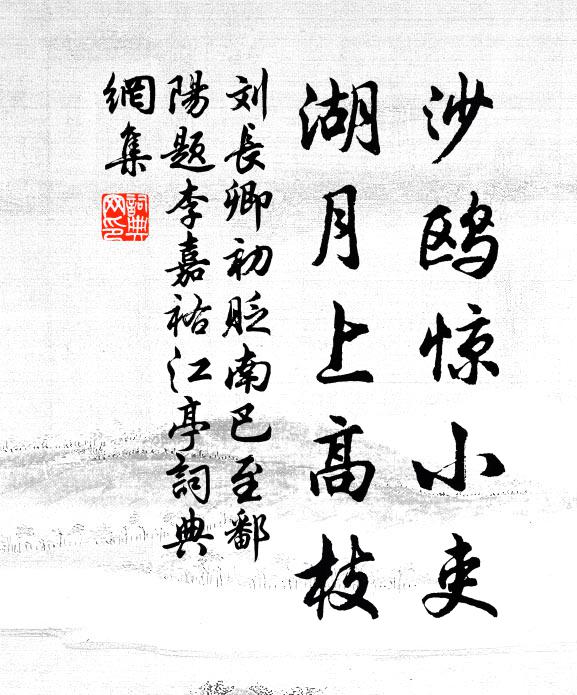 沙鸥惊小吏
湖月上高枝
刘长卿初贬南巴至鄱
陽题李嘉祐江亭詞典
網集
詞典
网印